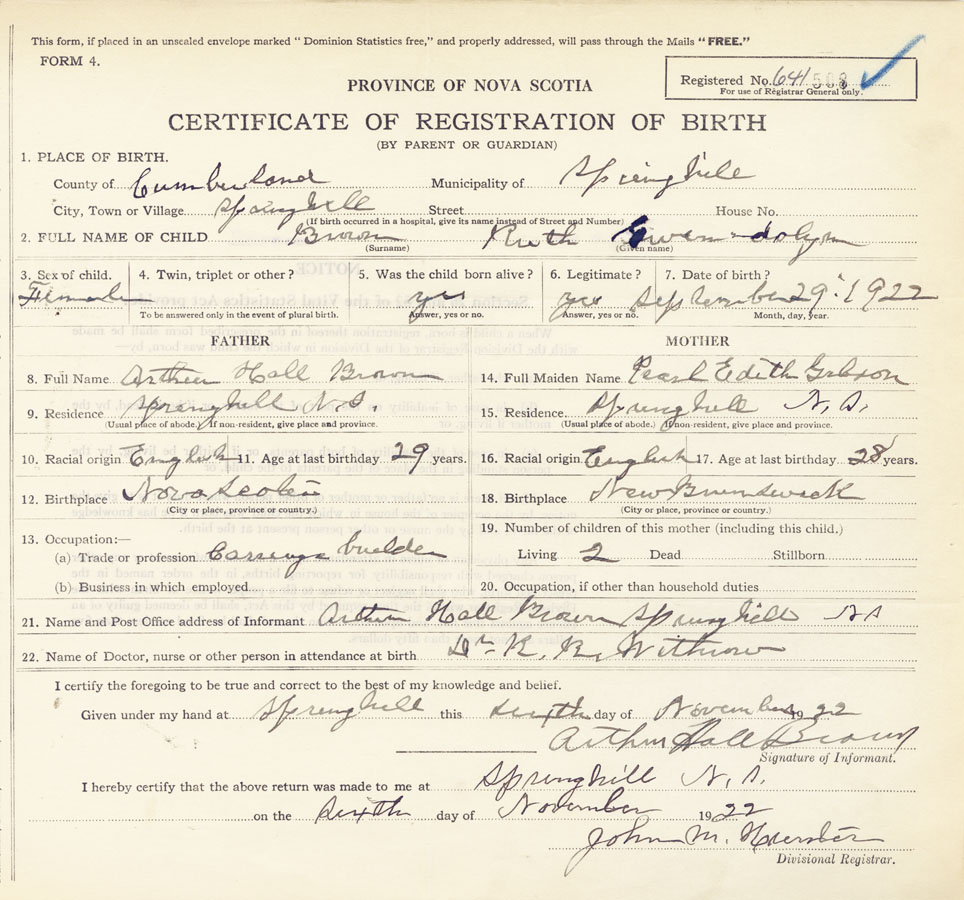 This form, if placed in an unsealed envelope marked "Dominion Statistics free," and properly addressed, will pass through the Mails "FREE."
FORM 4.
Registered No. 641 508
For use of Registrar General only.
PROVINCE OF NOVA SCOTIA
CERTIFICATE OF REGISTRATION OF BIRTH
(BY PARENT OR GUARDIAN)
1. PLACE OF BIRTH.
County of Cumberland Municipality of Springhill
City, Town or Village Springhill Street House No.
(If birth occurred in a hospital, give its name instead of Street and Number)
2. FULL NAME OF CHILD Brown Ruth Gwen-dolyn
(Surname) (Given name)
3. Sex of child. 4. Twin, triplet or other? 5. Was the child born alive? 6. Legitimate? 7. Date of birth?
Female yes yes September 29. 1922
To be answered only in the event of plural birth. Answer, yes or no. Answer, yes or no. Month, day, year.
FATHER MOTHER
8. Full Name Arthur Hall Brown 14. Full Maiden Name Pearl Edith
9. Residence Springhill N.S. 15. Residence. Springhill N.S.
(Usual place of abode.) If non-resident, give place and province. (Usual place of abode.) If non-resident, give place and province.
10. Racial origin English 11. Age at last birthday 29 years. 16. Racial origin English 17. Age at last birthday 28 years.
12. Birthplace Nova Scotia 18. Birthplace New Brunswick
(City or place, province or country.) (City or place, province or country.)
19. Number of children of this mother (including this child.)
13. Occupation:—
(a) Trade or profession Carriage builder Living 2 Dead Stillborn
(b) Business in which employed 20. Occupation, if other than household duties
21. Name and Post Office address of Informant Arthur Hall Brown Springhill NS
22. Name of Doctor, nurse or other person in attendance at birth Dr. K. K. Withrow
I certify the foregoing to be true and correct to the best of my knowledge and belief.
Given under my hand at Springhill this sixth day of November 1922
Arthur Hall Brown
Signature of Informant.
I hereby certify that the above return was made to me at Springhill N.S.
on the sixth day of November 1922
John M.
Divisional Registrar.